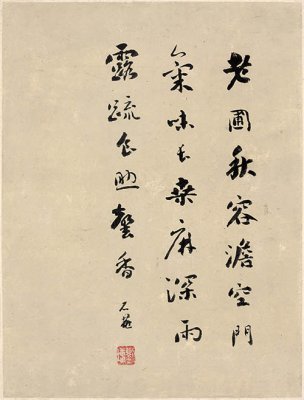 老圃秋容澹空門
氣味長桑麻深雨
露疏馨香